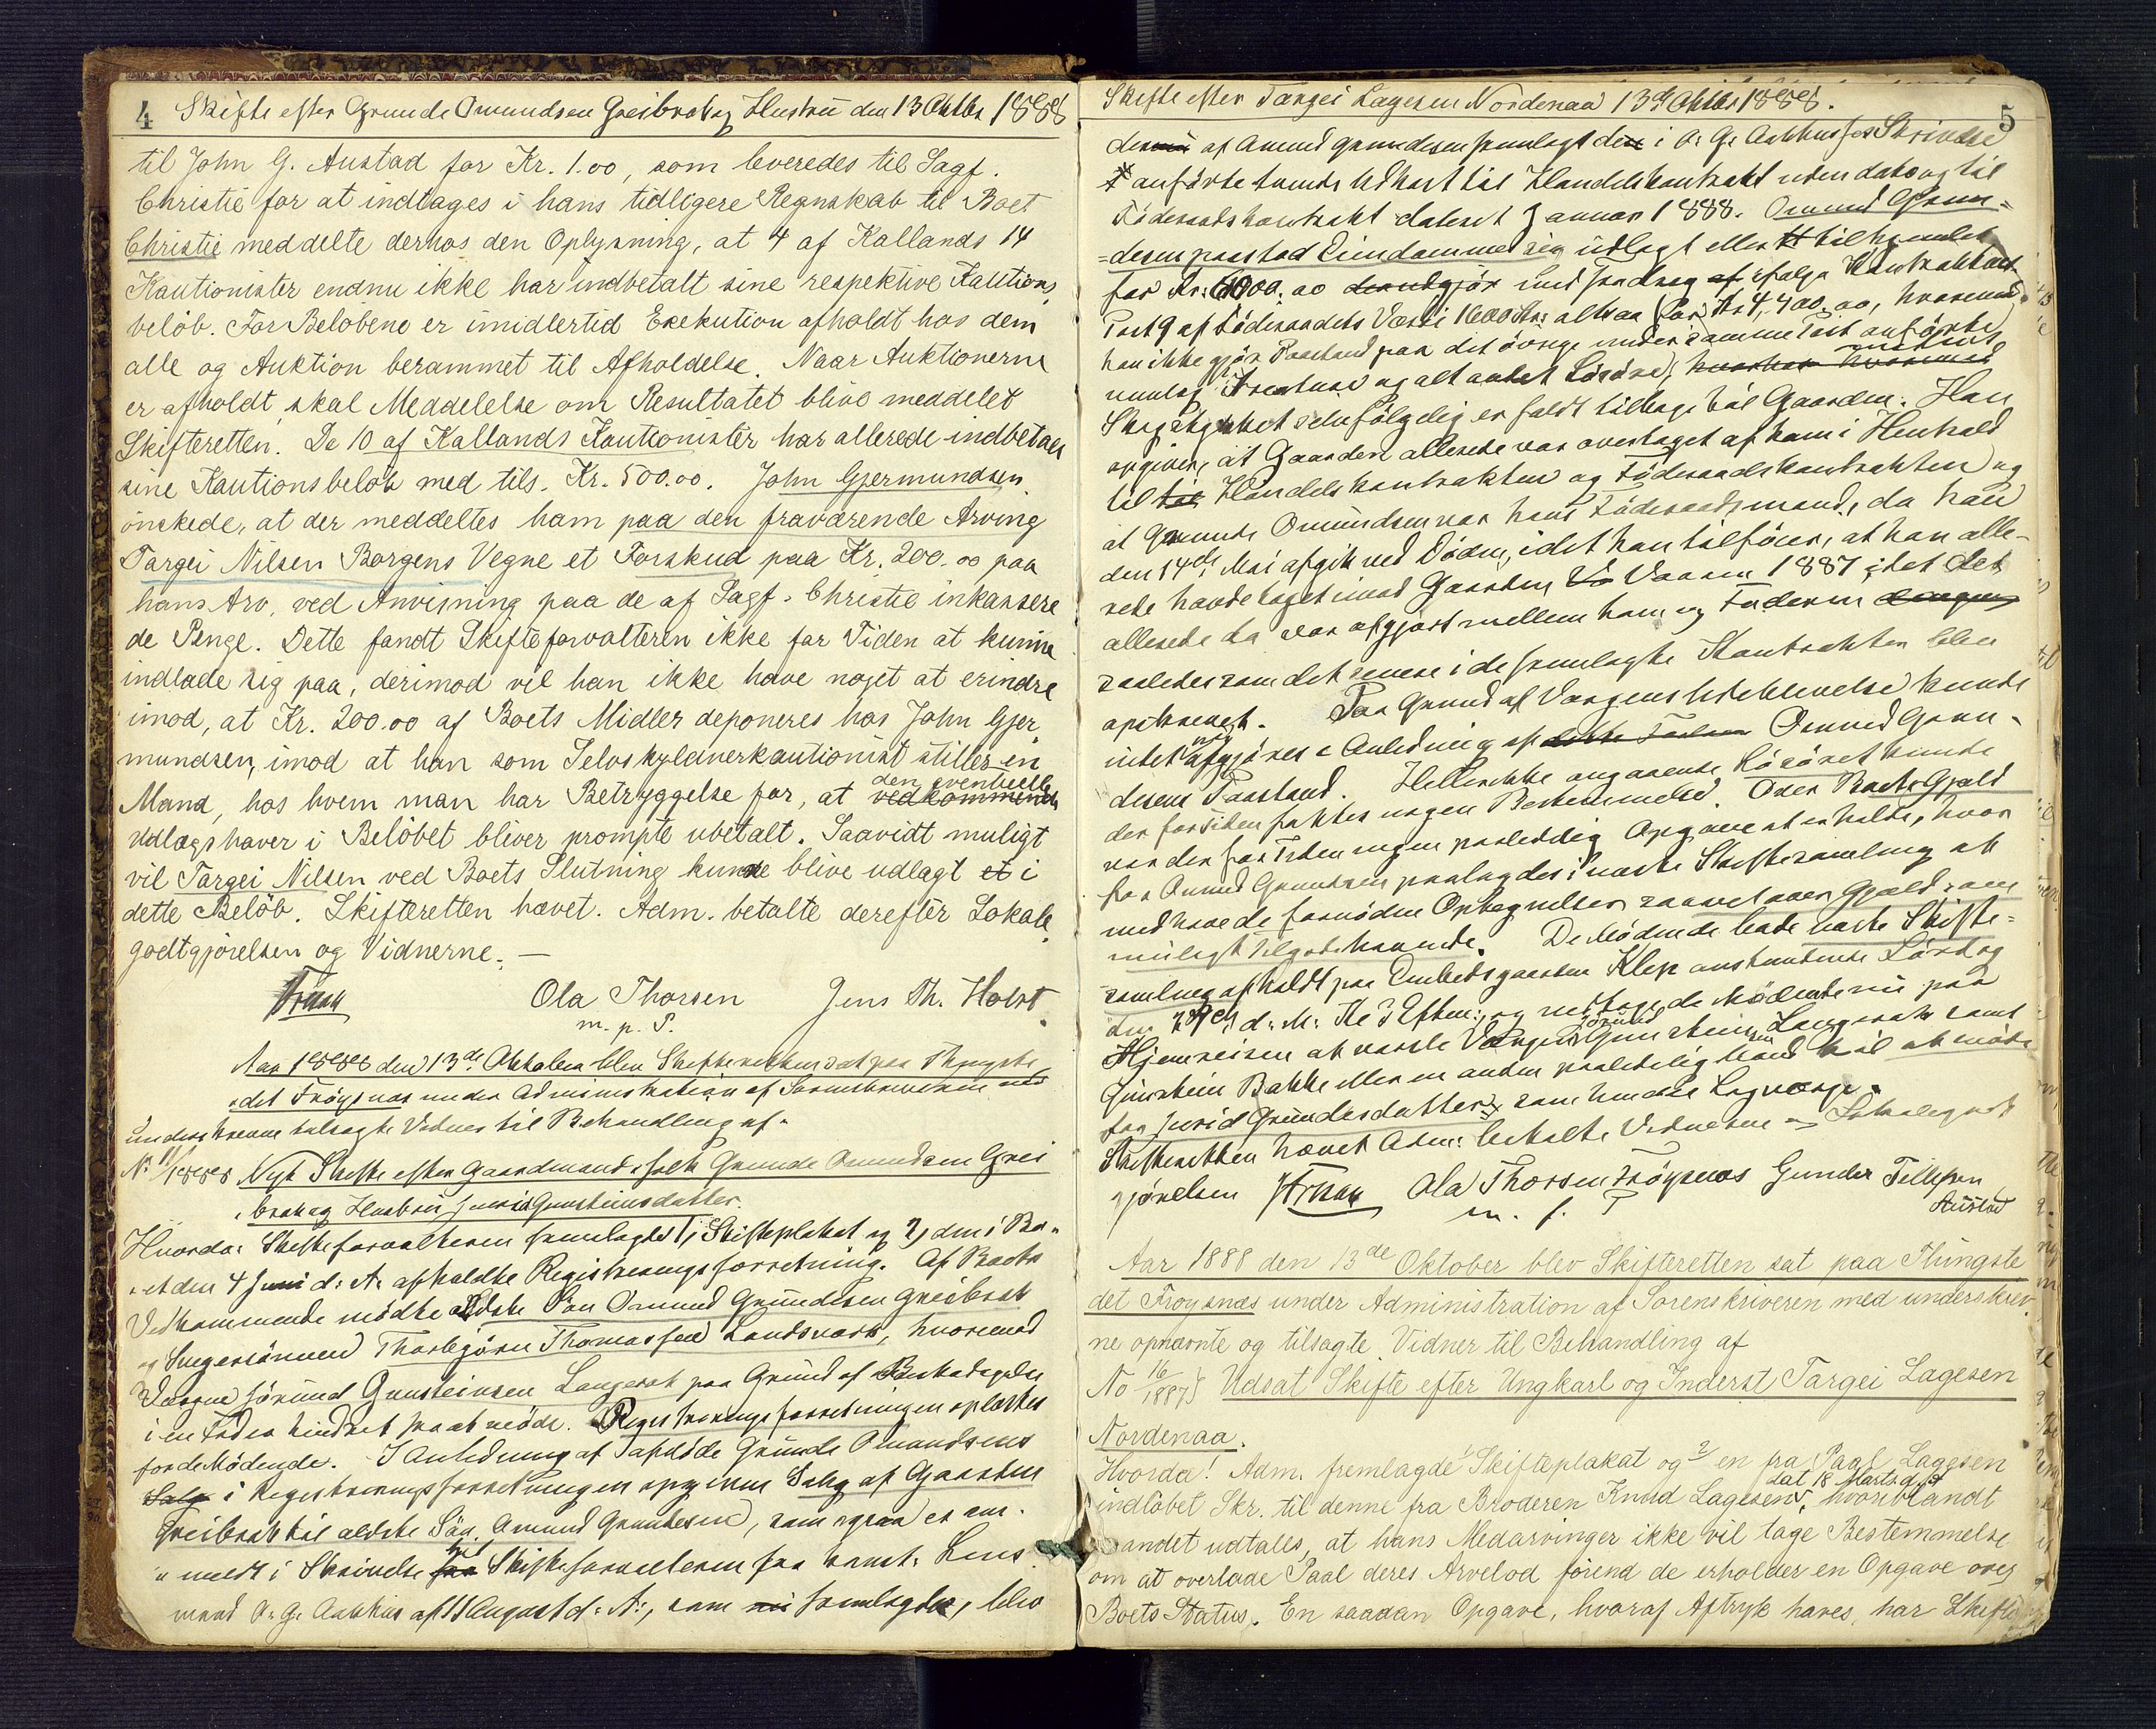 4 Skifte efter Grunde Omundsen Greibrok og Hustru den 13 Oktbr 1888
til John G. Austad for Kr. 1.00, som leveredes til Sagf.
Christie for at indtages i hans tidligere Regnskab til Boet
Christie meddelte derhos den Oplysning, at 4 af Kallands 14
Kautionister endnu ikke har indbetalt sine respektive Kautions
beløb. For Beløbene er imidlertid Exekution afholdt hos dem
alle og Auktion berammet til Afholdelse. Naar Auktionerne
er afholdt skal Meddelelse om Resultatet blive meddelet
Skifteretten. De 10 af Kallands Kautionister har allerede indbetalt
sine Kautionsbeløb med tils. Kr. 500.00. John Gjermundsen
ønskede, at der meddeltes ham paa den fraværende Arving
Targei Nilsen Borgens Vegne et Forskud paa Kr. 200.00 paa
hans Arv, ved Anvisning paa de af Sagf. Christie inkassere
de Penge. Dette fandt Skifteforvalteren ikke for Tiden at kunne
indlade sig paa, derimod vil han ikke have noget at erindre
imod, at Kr. 200.00 af Boets Midler deponeres hos John Gjer
mundsen, imod at han som Selvskyldnerkautionist stiller en
Mand, hos hvem man har Betryggelse for, at vedkommende den eventuelle
Udlægshaver i Beløbet bliver prompte ubetalt. Saavidt muligt
vil Targei Nilsen ved Boets Slutning kunne blive udlagt et i
dette Beløb. Skifteretten hævet. Adm. betalte derefter Lokale
godtgjørelsen og Vidnerne. —
Ola Thorsen Jens Th. Holst
m. p. P.
Aar 1888 den 13de Oktober blev Skifteretten sat paa Thingste
det Frøysnæs under Administration af Sorenskriveren med
underskrevne tilsagte Vidner til Behandling af
No 11/1888 Nyt Skifte efter Gaardmandsfolk Grunde Omundsen Grei
brok og Hustru Jurid Gunsteinsdatter.
Hvorda: Skifteforvalteren fremlagde 1, Skifteplakat og 2, den i Bo
et den 4 Juni d: A: afholdte Registreringsforretning. Af Boets
Vedkommende mødte ældste Søn Omund Grundesen Greibrok
og Svigersønnen Thorbjørn Thomassen Landsværk, hvorimod
Værgen Jørund Gunsteinsen Langerak paa Grund af Beskadigelse
i en Fod er hindret fra at møde. Registreringsforretningen oplæstes
for de Mødende. I Anledning af afdøde Grunde Omundsens
Salg i Registreringsforretningen opgivne Salg af Gaarden
Greibrok til ældste Søn Omund Grundesen, som ogsaa er om
meldt i Skrivelse fra til Skifteforvalteren fra konst. Lens
mand O. G. Aakhus af 11 August d: A:, som nu fremlagdes, blev
Skifte efter Targei Lagesen Nordenaa 13de Oktbr 1888. 5
af Omund Grundesen fremlagt den i O. G. Aakhus's Skrivelse
anførte Udkast til Handelskontrakt uden dato og til
Føderaadskontrakt dateret Januar 1888. Omund Grun
desen paastod Eiendommen sig udlagt eller tilhjemlet
for Kr: 6000.00 med Fradrag af ifølge Kontraktens
Post 9 af Føderaadets Værdi 1600 Kr: altsaa for Kr 4,400.00, hvorimod
han ikke gjør Paastand paa det øvrige under samme Post anførte
nemlig Kreature og alt andet Løsøre,
selvfølgelig er faldt tilbage til Gaarden. Han
opgiver, at Gaarden allerede var overtaget af ham i Henhold
til til Handelskontrakten og Føderaadskontrakten og
at Grunde Omundsen var hans Føderaadsmand, da han
den 14de Mai afgik ved Døden, idet han tilføier, at han alle
rede havde taget imod Gaarden Vaaren 1887, idet det
allerede da var afgjort mellem ham og Faderen
saaledes som det senere i de fremlagte Kontrakter blev
opskrevet. Paa Grund af Værgens Udeblivelse kunde
intet afgjøres i Anledning af Omund Grun
desens Paastand. Heller ikke angaaende Løsøret kunde
der for Tiden fattes nogen Bestemmelse. Over Boets Gjæld
var der for Tiden ingen paalidelig Opgave at erholde, hvor
for Omund Grundesen paalagdes i næste Skiftesamling at
medhave de fornødne Optegnelser saavel over Gjæld som
muligt Tilgodehavende. De Mødende bade næste Skifte
samling afholdt paa Embedsgaarden Klep anstundende Lørdag
den 27de d: M: Kl 3 Efterm:, og vedtoge de Mødende nu paa
Hjemreisen at varsle Værgen Jørund Gunsteinsen Langerak samt
Gunstein Bakke eller en anden paalidelig Mand til at møde
for Jurid Grundesdatter som hendes Lagværge.
Skifteretten hævet Adm: betalte Vidnerne og Lokalegodt
gjørelsen Ola Thorsen Frøysnæs Gunder Tellefsen
m. p. P Austad
Aar 1888 den 13de Oktober blev Skifteretten sat paa Thingste
det Frøysnæs under Administration af Sorenskriveren med underskrev
ne opnævnte og tilsagte Vidner til Behandling af
No 16/1887 Udsat Skifte efter Ungkarl og Inderst Targei Lagesen
Nordenaa.
Hvorda! Adm. fremlagde 1/ Skifteplakat og 2/ en fra Paal Lagesen
indløbet Skr. til denne fra Broderen Knud Lagesen, dat 18 Marts d. A. hvoriblandt
andet udtales, at hans Medarvinger ikke vil tage Bestemmelse
om at overlade Paal deres Arvelod førend de erholder en Opgave over
Boets Status. En saadan Opgave, hvoraf Aftryk haves, har Skifte